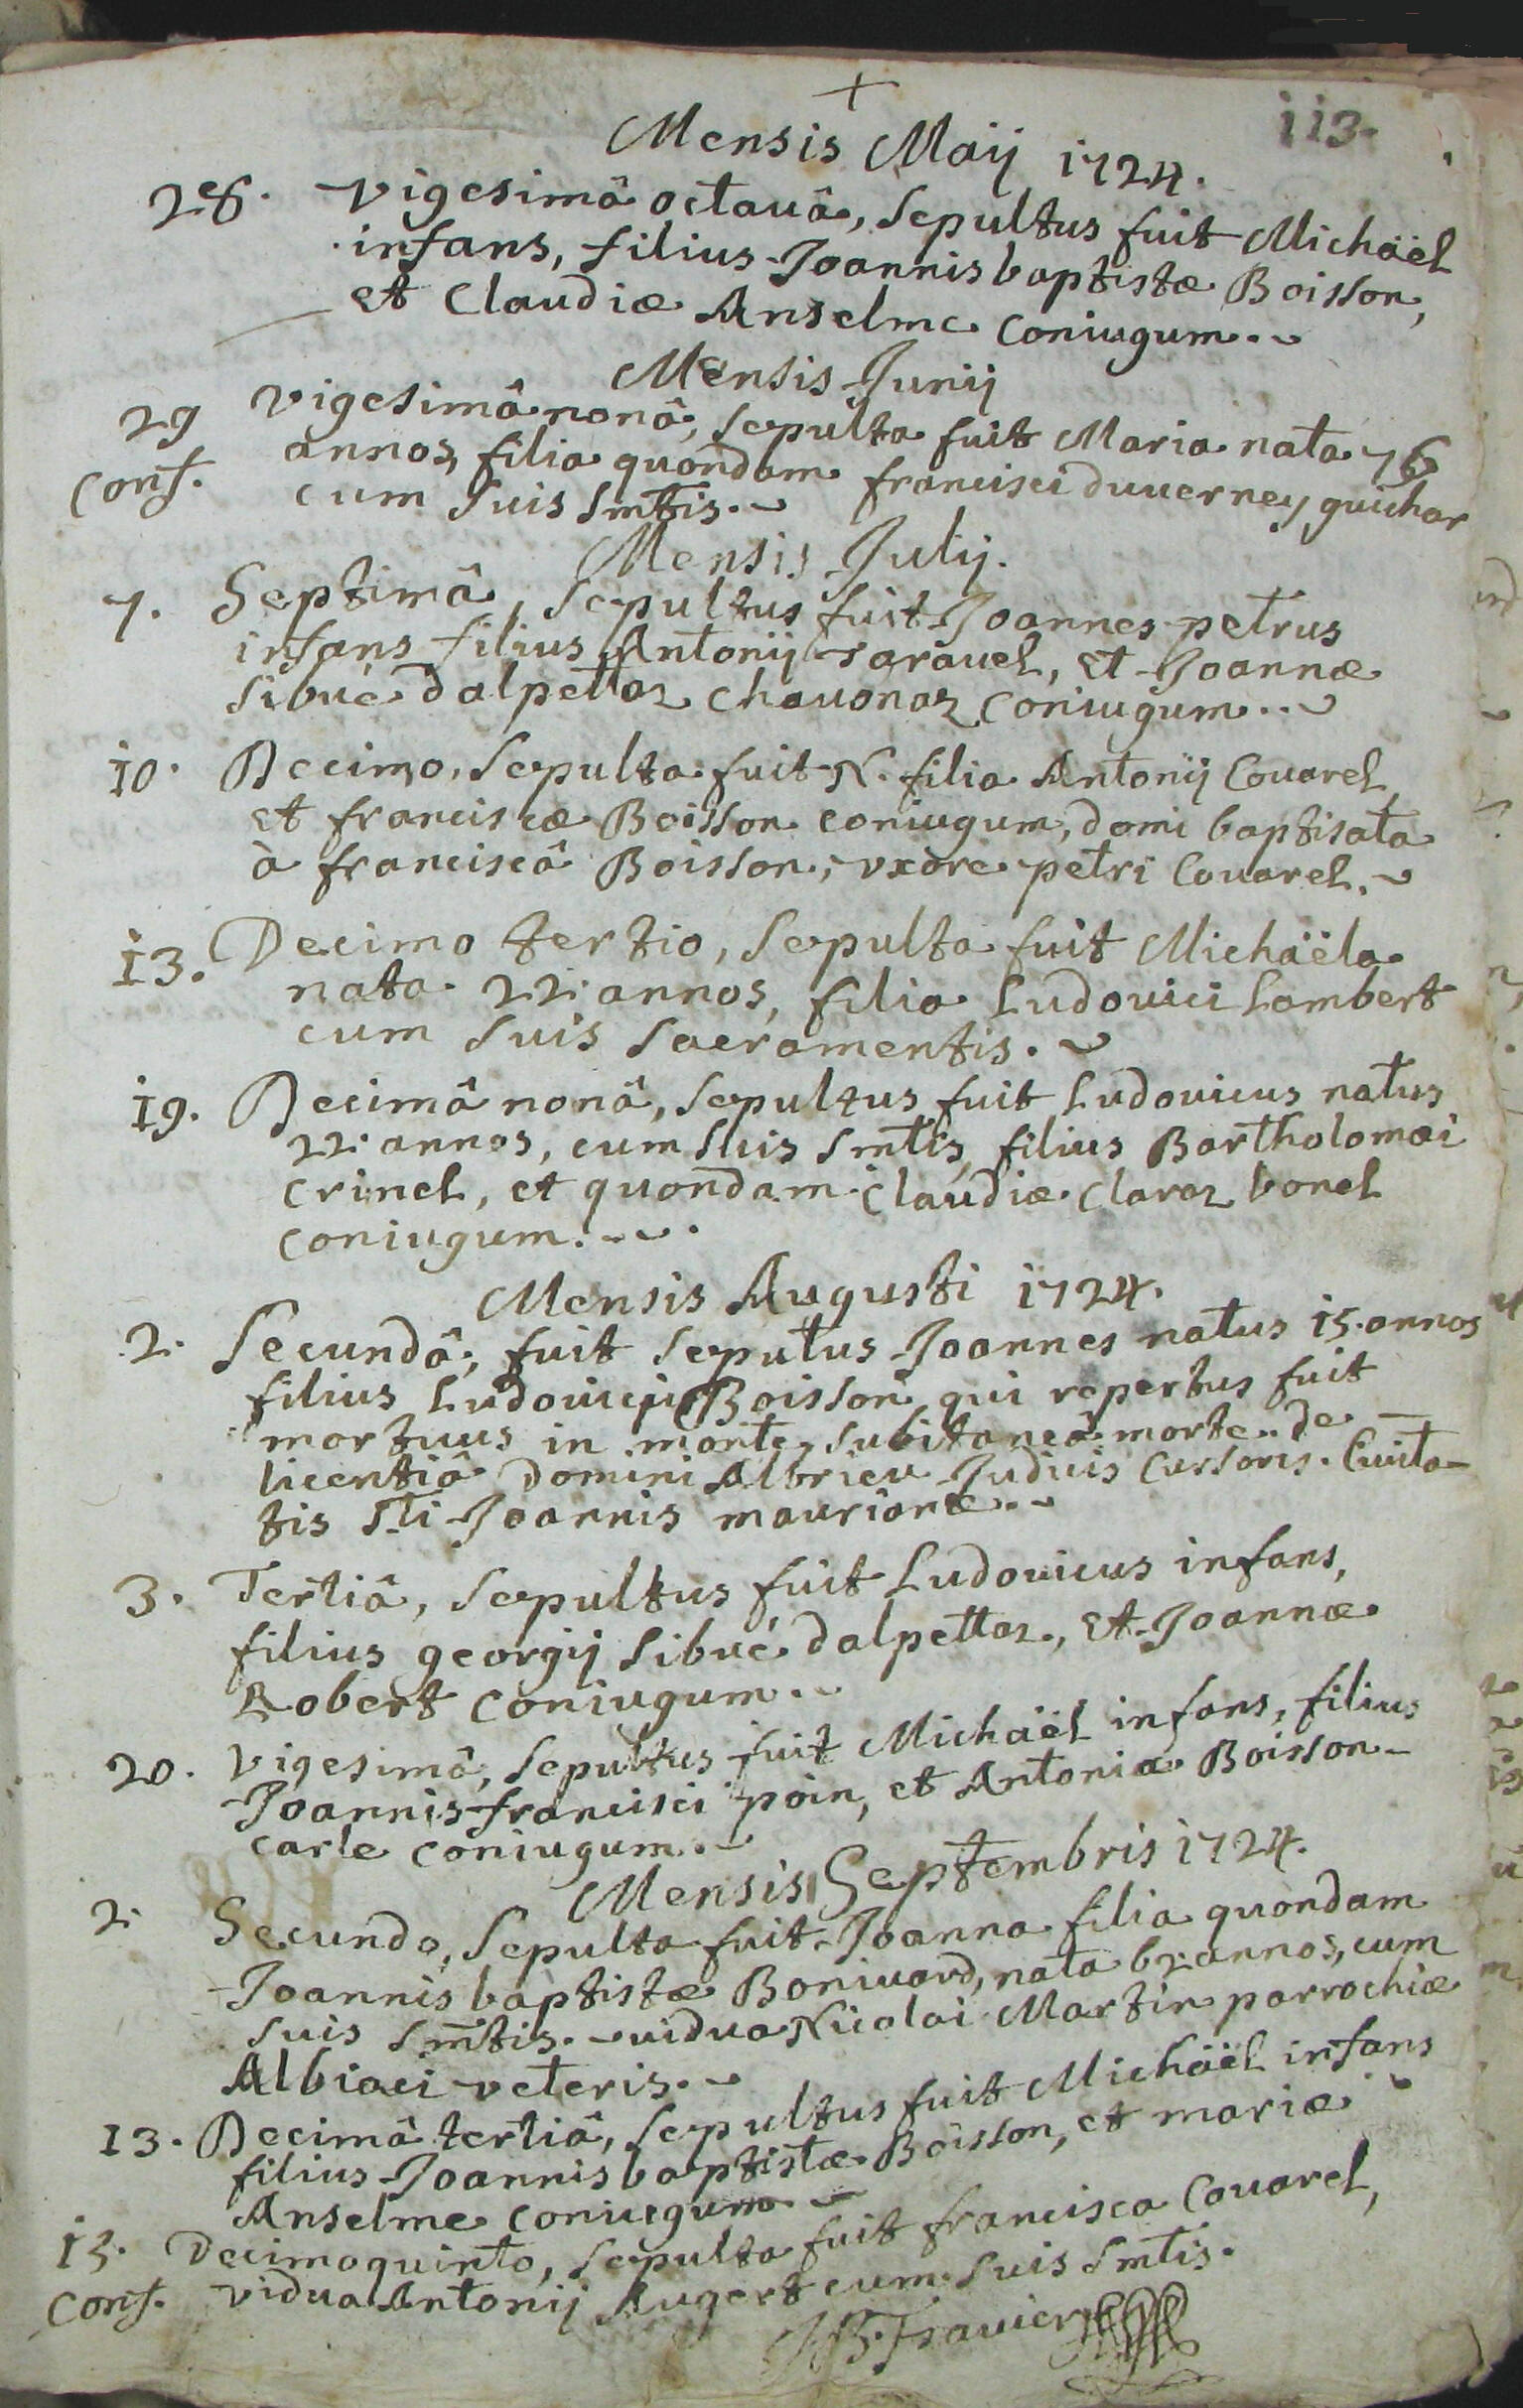 +
113.
Mensis Maij 1724.
28. Vigesimâ octauâ, Sepultus fuit Michäel
infans, filius Joannisbaptistæ Boisson,
et Claudiæ Anselme Coniugum..
Mensis Junij
29 Vigesimâ nonâ, Sepulta fuit Maria nata 76
Conf. annos, filia quondam francisci duuerney guichar
cum Suis Smtis.
Mensis Julij.
7. Septimâ, Sepultus fuit Joannes petrus
infans filius Antonij rarauel, et Joannæ
Sibué dalpettaz Chauonaz Coniugum..
10. Decimo, Sepulta fuit N. filia Antonij Couarel
et franciscæ Boisson coniugum, domi baptisata
à franciscâ Boisson, vxore petri Couarel.
13. Decimo tertio, Sepulta fuit Michäëla
nata 22. annos, filia Ludouici Lambert
cum Suis Sacramentis.
19. Decimâ nonâ, Sepultus fuit Ludouicus natus
22. annos, cum Suis Smtis, filius Bartholomæi
Crinel, et quondam Claudiæ Claraz bonel
Coniugum...
Mensis Augusti 1724.
2. Secundâ, fuit Seputus Joannes natus 15. annos
filius Ludouici Boisson qui repertus fuit
mortuus in monte, Subitaneâ morte. de
licentiâ Domini Albrieu Judicis Cursoris. Ciuita-
tis Sti Joannis maurianæ..
3. Tertiâ, Sepultus fuit Ludouicus infans,
filius georgij Sibué dalpettaz, et Joannæ
Robert Coniugum..
20. Vigesimâ, Sepultus fuit Michäël infans, filius
Joannisfrancisci poin, et Antoniæ Boisson-
carle Coniugum..
Mensis Septembris 1724.
2. Secunda, Sepulta fuit Joanna filia quondam
Joannis baptistæ Boniuard, nata 62 annos, cum
Suis Smtis. uidua Nicolai Martin parrochiæ
Albiaci veteris.
13. Decimâ tertiâ, Sepultus fuit Michäël infans
filius Joannis baptistæ Boisson, et mariæ
Anselme Coniugum
15. Decimoquinto, Sepulta fuit francisca Couarel,
Conf. vidua Antonij Augert cum Suis Smtis.